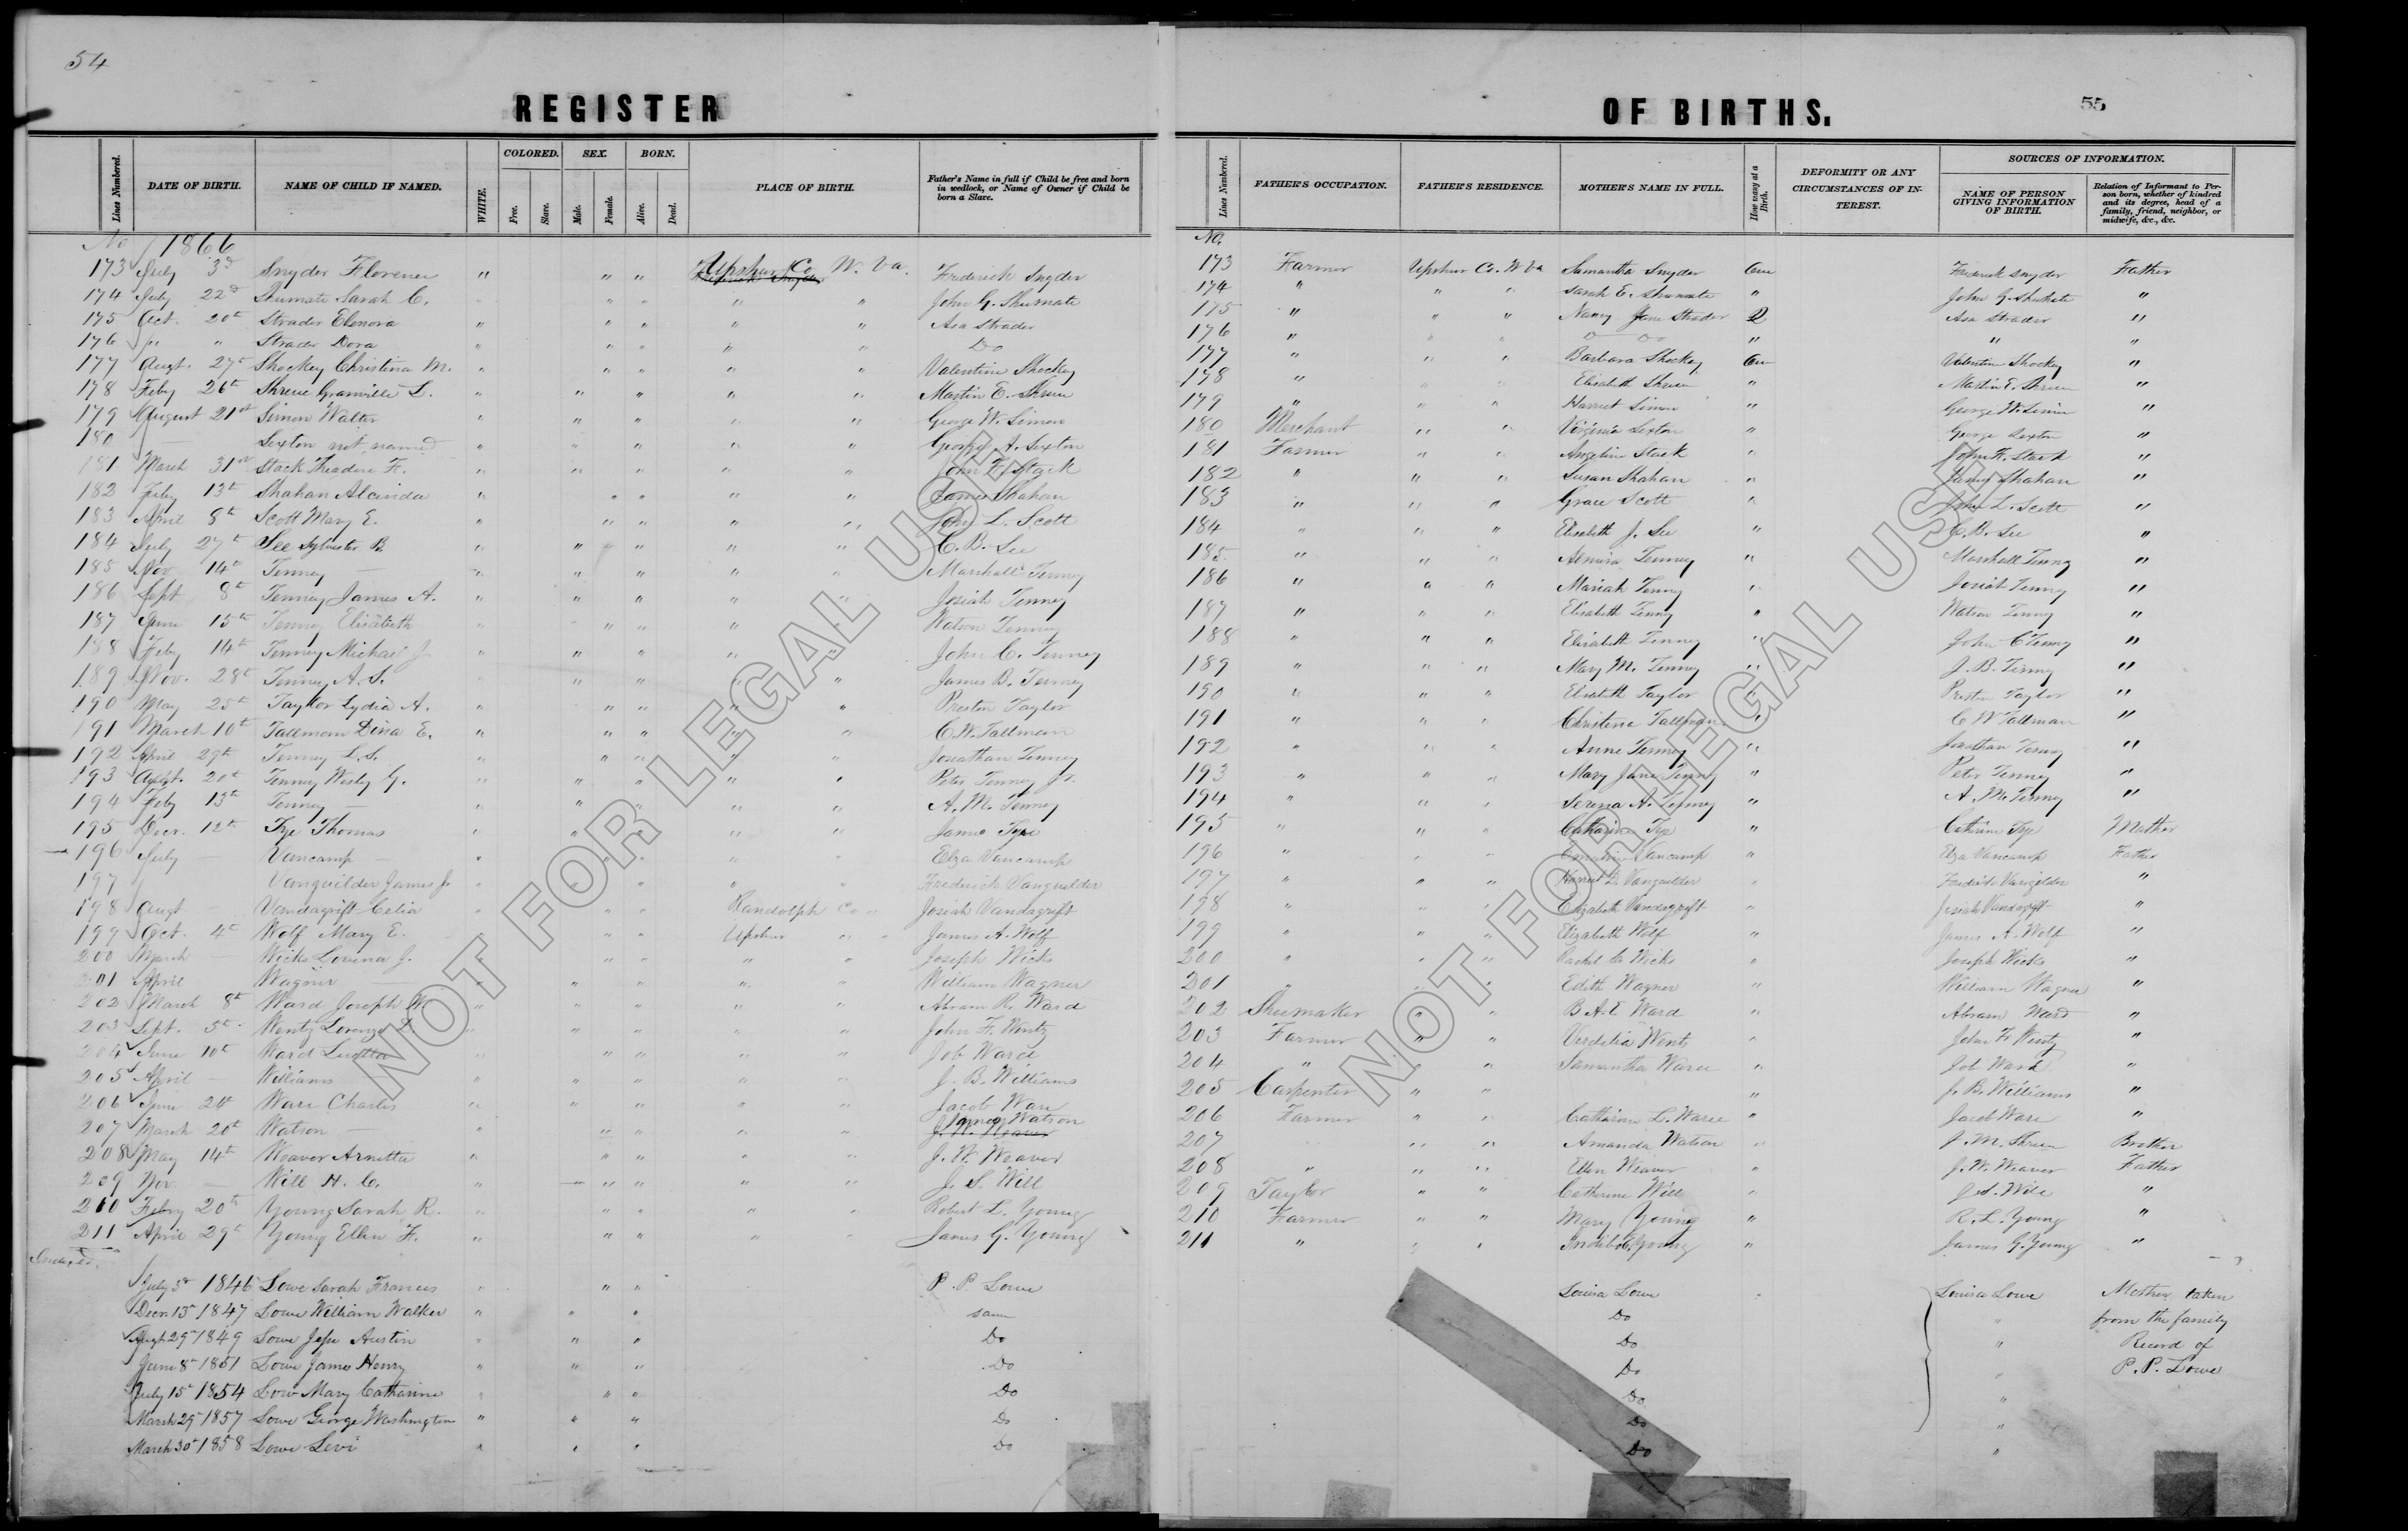 54
REGISTER
Lines Numbered. DATE OF BIRTH. NAME OF CHILD IF NAMED. WHITE. COLORED. Free. Slave. SEX. Male. Female. BORN. Alive. Dead. PLACE OF BIRTH. Father's Name in full if Child be free and born in wedlock, or Name of Owner if Child be born a Slave.
No 1866
173 July 3d Snyder Florence " " " Upshur Co. W. Va. Frederick Snyder
174 July 22d Shumate Sarah C. " " " " " John G. Shumate
175 Oct. 20th Strader Elenora " " " " " Asa Strader
176 " " Strader Dora " " " " " Do
177 Augt. 27th Shockey Christina M. " " " " " Valentine Shockey
178 Feby 26th Shreve Granville L. " " " " " Martin E. Shreve
179 August 21st Simon Walter " " " " " George W. Simon
180 — Sexton not named " " " " " George A. Sexton
181 March 31st Stack Theadore F. " " " " " John F. Stack
182 Feby 13th Shahan Alcinda " " " " " James Shahan
183 April 8th Scott Mary E. " " " " " John L. Scott
184 July 27th See Sylvester B. " " " " " C. B. See
185 Nov 14th Tenney — " " " " " Marshall Tenney
186 Sept 8th Tenney James A. " " " " " Josiah Tenney
187 June 15th Tenney Elisabeth " " " " " Watson Tenney
188 Feby 14th Tenney Michael J. " " " " " John C. Tenney
189 Nov. 28th Tenney A. S. " " " " " James B. Tenney
190 May 25th Taylor Lydia A. " " " " " Preston Taylor
191 March 10th Tallman Dina E. " " " " " C. W. Tallman
192 April 29th Tenney L. S. " " " " " Jonathan Tenney
193 Augt. 20th Tenney Wesly G. " " " " " Peter Tenney Jr.
194 Feby 13th Tenney — " " " " " A. M. Tenney
195 Decr. 12th Tye Thomas " " " " " James Tye
196 July — Vancamp — " " " " " Elza Vancamp
197 Vanguilder James J. " " " " " Frederick Vanguilder
198 Augt — Vandagrift Celia " " " Randolph Co " Josiah Vandagrift
199 Oct. 4th Wolf Mary E. " " " Upshur " " James A. Wolf
200 March — Wicks Lovina J. " " " " " Joseph Wicks
201 April Wagner — " " " " " William Wagner
202 March 8th Ward Joseph M. " " " " " Abram R. Ward
203 Sept. 5th Wentz Lorenzo D. " " " " " John F. Wentz
204 June 10th Ward Luetta " " " " " Job Ward
205 April — Williams " " " " " J. B. Williams
206 June 24th Ware Charles " " " " " Jacob Ware
207 March 20th Watson — " " " " " James Watson
208 May 14th Weaver Arnetta " " " " " J. W. Weaver
209 Nov. — Will H. C. " " " " " J. S. Will
210 Febry 20th Young Sarah R. " " " " " Robert L. Young
211 April 29th Young Ellen F. " " " " " James G. Young
Indexed.
July 3d 1846 Lowe Sarah Frances " " " P. P. Lowe
Decr. 13th 1847 Lowe William Walker " " " same
Augt 29th 1849 Lowe Jesse Austin " " " Do
June 8th 1851 Lowe James Henry " " " Do
July 15th 1854 Low Mary Catharine " " " Do
March 29th 1857 Lowe George Washington " " " Do
March 30th 1858 Lowe Levi " " " Do
NOT FOR LEGAL USE
OF BIRTHS.
55
Lines Numbered. FATHER'S OCCUPATION. FATHER'S RESIDENCE. MOTHER'S NAME IN FULL. How many at a Birth. DEFORMITY OR ANY CIRCUMSTANCES OF INTEREST. SOURCES OF INFORMATION. NAME OF PERSON GIVING INFORMATION OF BIRTH. Relation of Informant to Person born, whether of kindred and its degree, head of a family, friend, neighbor, or midwife, &c., &c.
No.
173 Farmer Upshur Co. W Va Samantha Snyder One Frederick Snyder Father
174 " " " Sarah E. Shumate " John G. Shumate "
175 " " " Nancy Jane Strader 2 Asa Strader "
176 " " " Do Do " " "
177 " " " Barbara Shockey One Valentine Shockey "
178 " " " Elisabeth Shreve " Martin E. Shreve "
179 " " " Harriet Simon " George W. Simon "
180 Merchant " " Virginia Sexton " George Sexton "
181 Farmer " " Angeline Stack " John F. Stack "
182 " " " Susan Shahan " James Shahan "
183 " " " Grace Scott " John L. Scott "
184 " " " Elisabeth J. See " C. B. See "
185 " " " Almira Tenney " Marshall Tenney "
186 " " " Mariah Tenney " Josiah Tenney "
187 " " " Elisabeth Tenney " Watson Tenney "
188 " " " Elisabeth Tenney " John C Tenney "
189 " " " Mary M. Tenney " J. B. Tenney "
190 " " " Elisabeth Taylor " Preston Taylor "
191 " " " Christena Tallman " C W Tallman "
192 " " " Anne Tenney " Jonathan Tenney "
193 " " " Mary Jane Tenney " Peter Tenney "
194 " " " Serena A. Tenney " A. M. Tenney "
195 " " " Catharine Tye " Cathrine Tye Mother
196 " " " Vancamp " Elza Vancamp Father
197 " " " Harriet E. Vanguilder " Frederick Vangilder "
198 " " " Elizabeth Vandagrift " Josiah Vandagrift "
199 " " " Elizabeth Wolf " James A. Wolf "
200 " " " Rachel Wicks " Joseph Wicks "
201 " " " Edith Wagner " William Wagner "
202 Shoemaker " " B A E Ward " Abram Ward "
203 Farmer " " Verdilia Wents " John F. Wentz "
204 " " " Samantha Ward " Job Ward "
205 Carpenter " " " J. B. Williams "
206 Farmer " " Catharine L. Ware " Jacob Ware "
207 " " " Amanda Watson " J. M. Shreve Brother
208 " " " Ellen Weaver " J. W. Weaver Father
209 Taylor " " Catherine Will " J. S. Will "
210 Farmer " " Mary Young " R. L. Young "
211 " " " Young " James G. Young "
Louisa Lowe " Louisa Lowe Mother taken
Do " from the family
Do " Record of
Do " P. P. Lowe
Do "
Do "
Do "
NOT FOR LEGAL USE